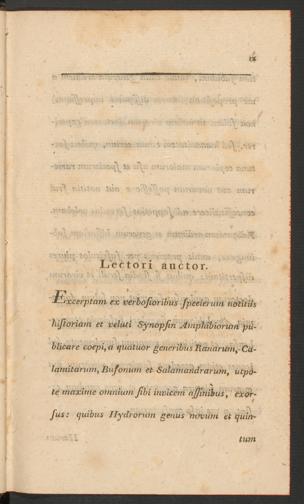 ix
Lectori auctor.
Excerptam ex verboſioribus ſpecierum notitiis
hiſtoriam et veluti Synopſin Amphibiorum pu-
blicare coepi, a quatuor generibus Ranarum, Ca-
lamitarum, Bufonum et Salamandrarum, utpo-
te maxime omnium ſibi invicem affinibus, exor-
ſus: quibus Hydrorum genus novum et quin-
tum